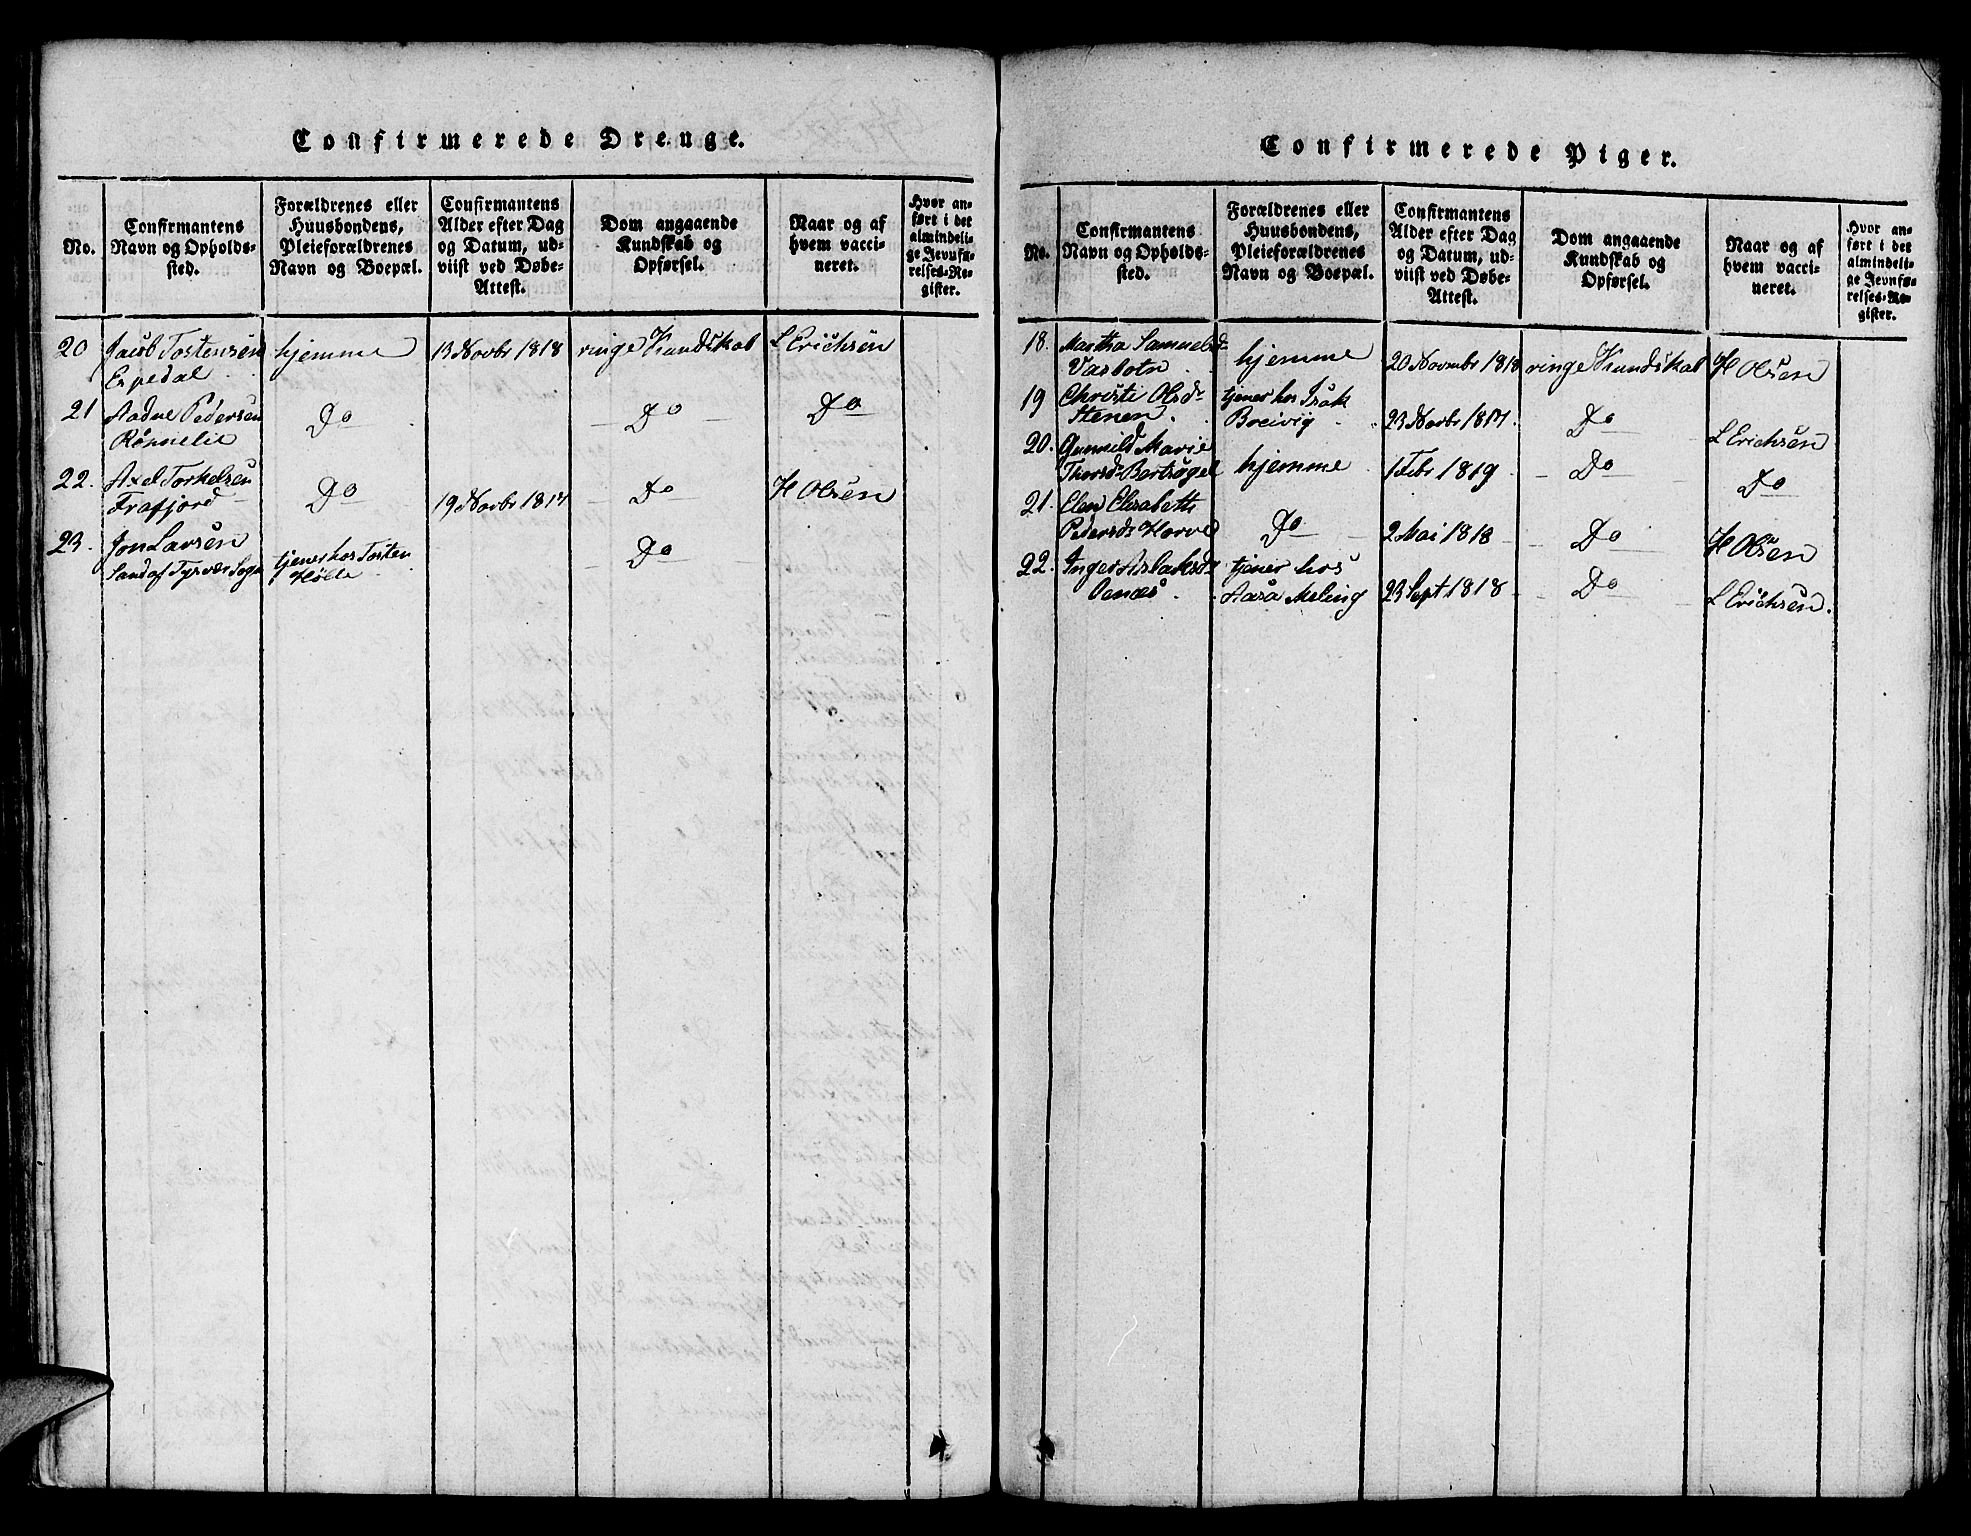 Confirmerede Drenge.
No.
Confirmantens
Navn og Opholds-
sted.
Forældrenes eller
Huusbondens,
Pleieforældrenes
Navn og Boepæl.
Confirmantens
Alder efter Dag
og Datum, ud-
viist ved Døbe-
Attest.
Dom angaaende
Kundskab og
Opførsel.
Naar og af
hvem vacci-
neret.
Hvor an-
ført i det
almindeli-
ge Jevnfø-
relses-Re-
gister.
20 Jacob Tostensen hjemme 13 Novbr 1818 ringe Kundskab L Erichsen
Espedal
21 Aadne Pedersen Do Do Do
Rönnelie
22. Axel Torkelsen Do 19 Novbr 1817 Do H Olsen
Frafjord
23. Jon Larsen tjener hos Tosten Do
Sand af Tysvær Sogn Hölle
Confirmerede Piger.
No.
Confirmantens
Navn og Opholds-
sted.
Forældrenes eller
Huusbondens,
Pleieforældrenes
Navn og Boepæl.
Confirmantens
Alder efter Dag
og Datum, ud-
viist ved Døbe-
Attest.
Dom angaaende
Kundskab og
Opførsel.
Naar og af
hvem vacci-
neret.
Hvor an-
ført i det
almindeli-
ge Jevnfø-
relses-Re-
gister.
18. Martha Samuelsd
Vasbotn hjemme 20 Novmbr 1818 ringe Kundskab H Olsen
19 Christi Olsdr tjener hos Isak
Stenen Breivig 23 Novbr 1817. Do L Erichsen
20. Gunnild Marie
Thorsdr hjemme 1 Febr 1819 Do Do
21. Elen Elisabeth
Pedersdr Do 2 Mai 1818 Do H Olsen
22. Inger Aslaksdr tjener hos
Oanæs Aasa Meling 23 Sept 1818 Do L Erichsen.